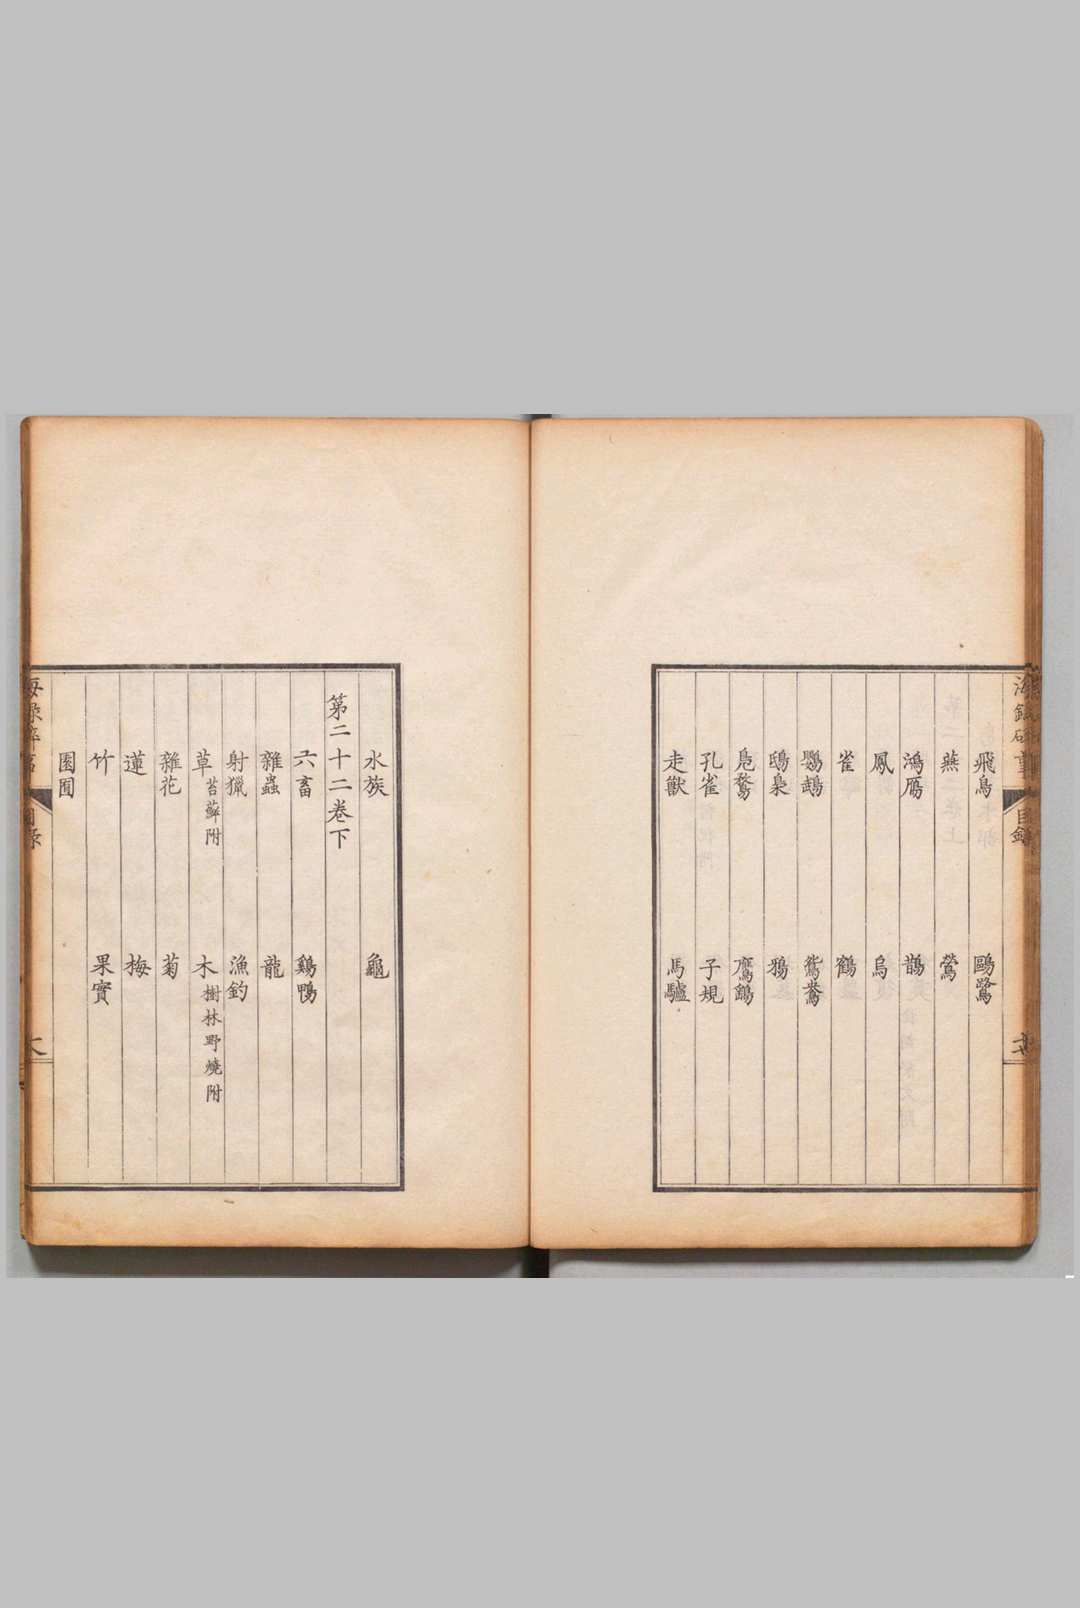 飛鳥 鷗鷺
燕 鶯
鴻鴈 鵲
鳳 烏
雀 鶴
鸚鵡 鴛鴦
鴟梟 鴉
鳧鶩 鷹鷂
孔雀 子規
走獸 馬驢
水族 龜
第二十二卷下
六畜 鷄鴨
雜蟲 龍
射獵 漁釣
草 苔蘚附 木 樹林野燒附
雜花 菊
蓮 梅
竹 果實
園圃
目錄